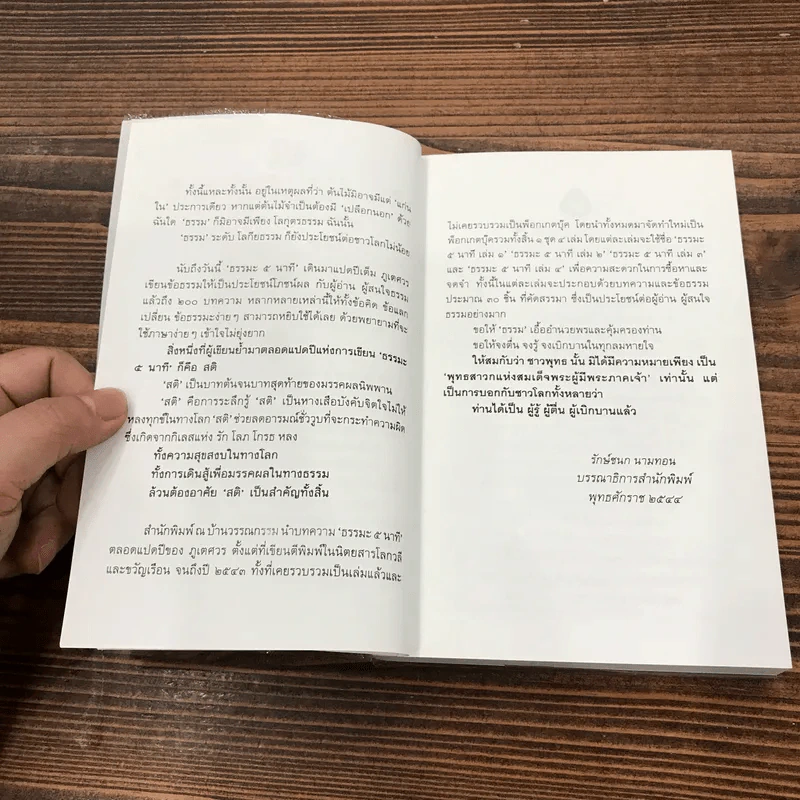 ทั้งนี้แหละทั้งนั้น อยู่ในเหตุผลที่ว่า ต้นไม้มิอาจมีแต่ 'แก่น
ใน' ประการเดียว หากแต่ต้นไม้จำเป็นต้องมี 'เปลือกนอก' ด้วย
ฉันใด 'ธรรม' ก็มิอาจมีเพียง โลกุตรธรรม ฉันนั้น
'ธรรม' ระดับ โลกียธรรม ก็ยังประโยชน์ต่อชาวโลกไม่น้อย
นับถึงวันนี้ 'ธรรมะ ๕ นาที' เดินมาแปดปีเต็ม ภูเตศวร
เขียนข้อธรรมให้เป็นประโยชน์โภชน์ผล กับผู้อ่าน ผู้สนใจธรรม
แล้วถึง ๒๐๐ บทความ หลากหลายเหล่านี้ให้ทั้งข้อคิด ข้อแลก
เปลี่ยน ข้อธรรมะง่ายๆ สามารถหยิบใช้ได้เลย ด้วยพยายามที่จะ
ใช้ภาษาง่ายๆ เข้าใจไม่ยุ่งยาก
สิ่งหนึ่งที่ผู้เขียนย้ำมาตลอดแปดปีแห่งการเขียน 'ธรรมะ
๕ นาที' ก็คือ สติ
'สติ' เป็นบาทต้นจนบาทสุดท้ายของมรรคผลนิพพาน
'สติ' คือการระลึกรู้ 'สติ' เป็นหางเสือบังคับจิตใจไม่ให้
หลงทุกข์ในทางโลก 'สติ' ช่วยลดอารมณ์ชั่ววูบที่จะกระทำความผิด
ซึ่งเกิดจากกิเลสแห่ง รัก โลภ โกรธ หลง
ทั้งความสุขสงบในทางโลก
ทั้งการเดินสู้เพื่อมรรคผลในทางธรรม
ล้วนต้องอาศัย 'สติ' เป็นสำคัญทั้งสิ้น
สำนักพิมพ์ ณ บ้านวรรณกรรม นำบทความ 'ธรรมะ ๕ นาที'
ตลอดแปดปีของ ภูเตศวร ตั้งแต่ที่เขียนตีพิมพ์ในนิตยสารโลกวลี
และขวัญเรือน จนถึงปี ๒๕๔๓ ทั้งที่เคยรวบรวมเป็นเล่มแล้วและ
ไม่เคยรวบรวมเป็นพ็อกเกตบุ๊ค โดยนำทั้งหมดมาจัดทำใหม่เป็น
พ็อกเกตบุ๊ครวมทั้งสิ้น ๑ ชุด ๔ เล่ม โดยแต่ละเล่มจะใช้ชื่อ 'ธรรมะ
๕ นาที เล่ม ๑' 'ธรรมะ ๕ นาที เล่ม ๒' 'ธรรมะ ๕ นาที เล่ม ๓'
และ 'ธรรมะ ๕ นาที เล่ม ๔' เพื่อความสะดวกในการซื้อหาและ
จดจำ ทั้งนี้ในแต่ละเล่มจะประกอบด้วยบทความและข้อธรรม
ประมาณ ๓๐ ชิ้น ที่คัดสรรมา ซึ่งเป็นประโยชน์ต่อผู้อ่าน ผู้สนใจ
ธรรมอย่างมาก
ขอให้ 'ธรรม' เอื้ออำนวยพรและคุ้มครองท่าน
ขอให้จงตื่น จงรู้ จงเบิกบานในทุกลมหายใจ
ให้สมกับว่า ชาวพุทธ นั้น มิได้มีความหมายเพียง เป็น
'พุทธสาวกแห่งสมเด็จพระผู้มีพระภาคเจ้า' เท่านั้น แต่
เป็นการบอกกับชาวโลกทั้งหลายว่า
ท่านได้เป็น ผู้รู้ ผู้ตื่น ผู้เบิกบานแล้ว
รักษ์ชนก นามทอน
บรรณาธิการสำนักพิมพ์
พุทธศักราช ๒๕๔๔